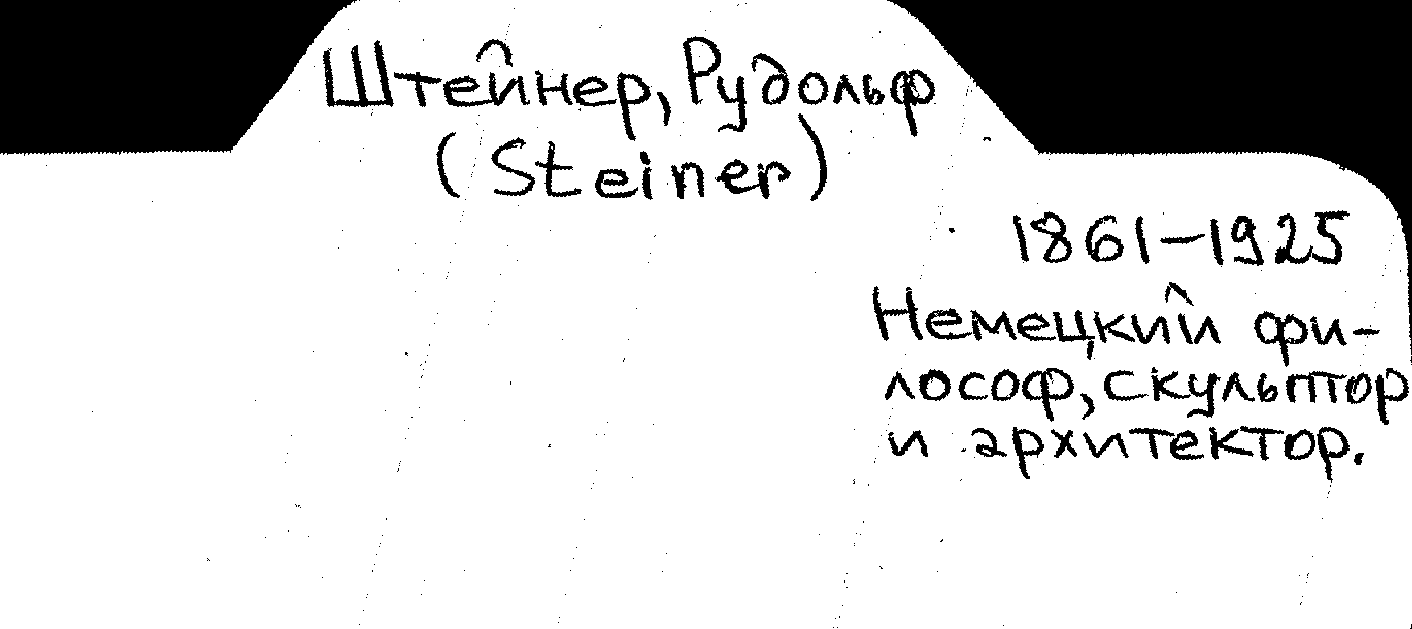 Штейнер, Рудольф
(Steiner)
1861-1925
Немецкий фи-
лософ, скульптор
и архитектор.